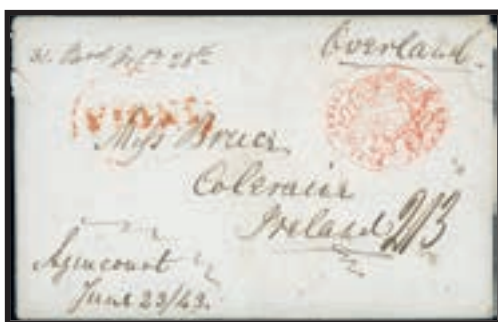 Overland
INDIA
Miss Bruce
Coleraine
Ireland 2/3
Agincourt
June 23/43.